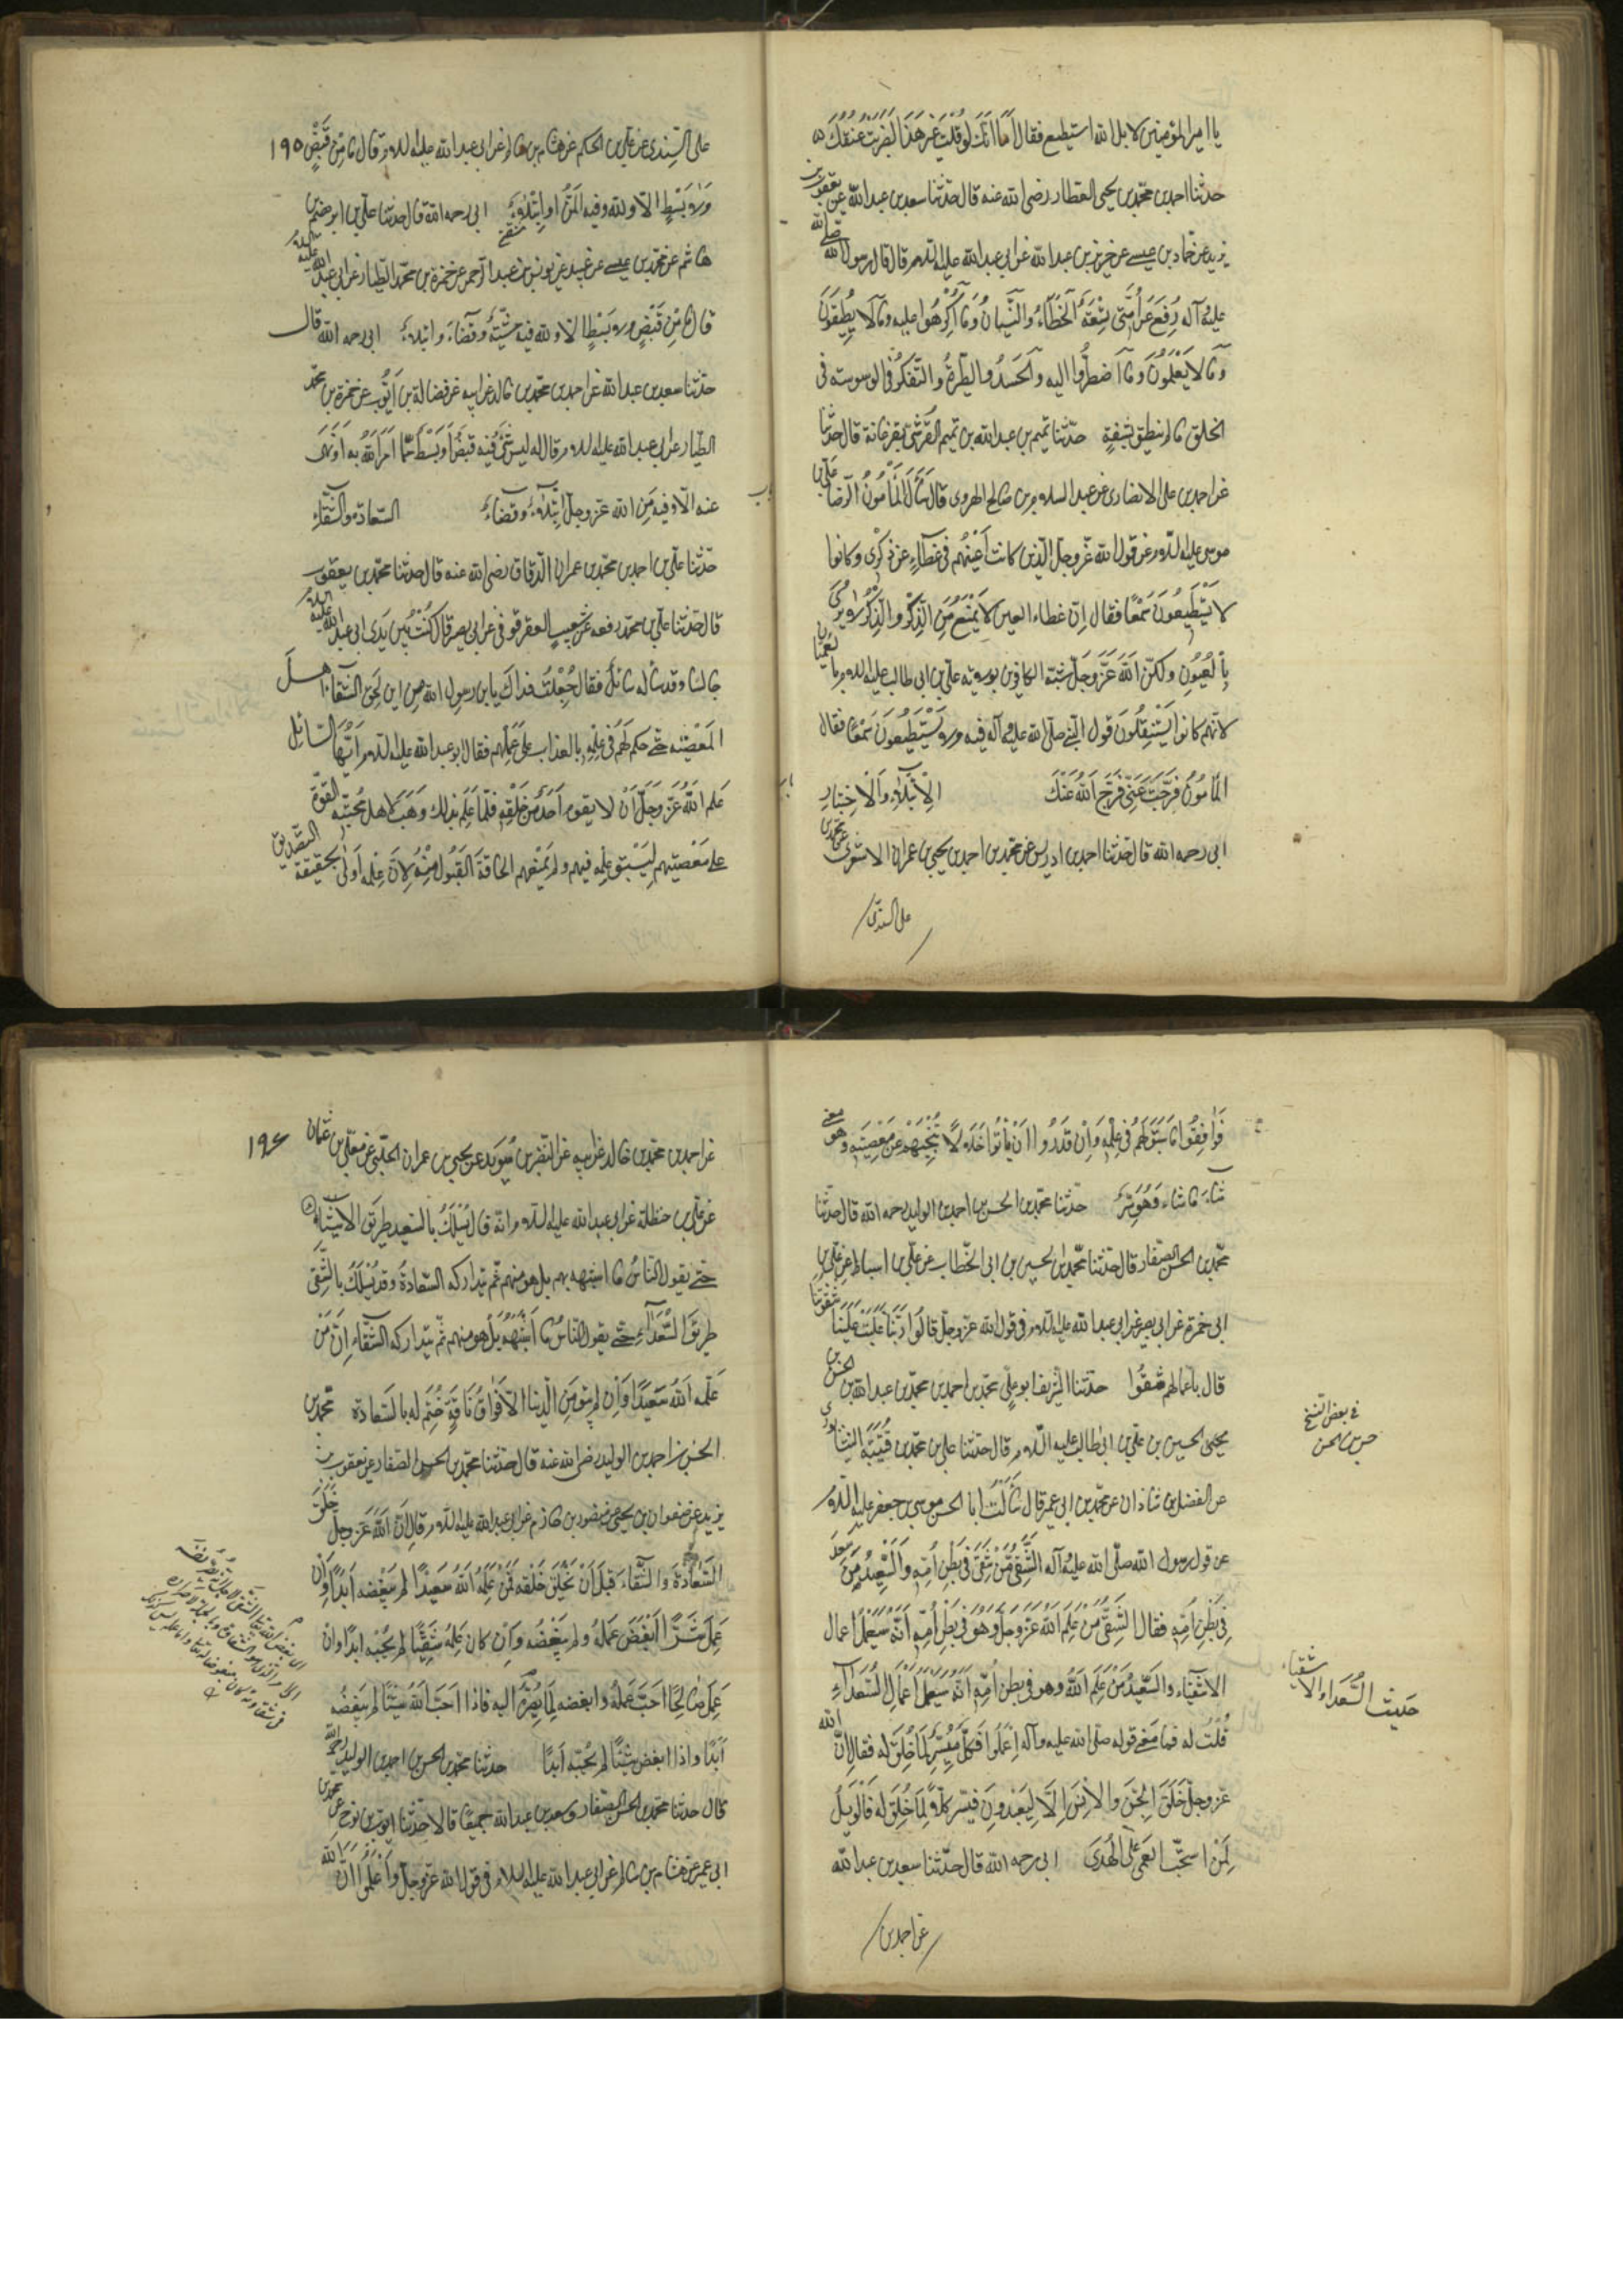 يا امير المؤمنين لا بل بالله استطيع فقال اما انك لو قلت غير هذا لضربت عنقك
حدثنا احمد بن محمد بن يحيى العطار رضى الله عنه قال حدثنا سعد بن عبد الله عن يعقوب بن
يزيد عن حماد بن عيسى عن حريز بن عبد الله عن ابى عبد الله عليه السلام قال قال رسول الله صلى الله
عليه وآله رفع عن امتى تسعة الخطاء والنسيان وما اكرهوا عليه وما لا يطيقون
وما لا يعلمون وما اضطروا اليه والحسد والطيرة والتفكر فى الوسوسة فى
الخلق ما لم ينطق بشفة حدثنا تميم بن عبد الله بن تميم القرشى بفرغانة قال حدثنا
عن احمد بن على الانصارى عن عبد السلام بن صالح الهروى قال سأل المأمون الرضا على بن
موسى عليه السلام عن قول الله عز وجل الذين كانت اعينهم فى غطاء عن ذكرى وكانوا
لا يستطيعون سمعا فقال ان غطاء العين لا يمنع من الذكر والذكر لا يرى
بالعيون ولكن الله عز وجل شبه الكافرين بولاية على بن ابى طالب عليه السلام بالعميان
لانهم كانوا يستثقلون قول النبى صلى الله عليه وآله فيه ولا يستطيعون سمعا فقال
المأمون فرجت عنى فرج الله عنك باب الابتلاء والاختبار
ابى رحمه الله قال حدثنا احمد بن ادريس عن محمد بن احمد بن يحيى بن عمران الاشعرى عن محمد بن
على السندى
على السندى عن على بن الحكم عن هشام بن سالم عن ابى عبد الله عليه السلام قال ما من قبض ١٩٥
ولا بسط الا ولله فيه المن او ابتلاء ابى رحمه الله قال حدثنا على بن ابراهيم بن
هاشم عن محمد بن عيسى بن عبيد عن يونس بن عبد الرحمن عن حمزة بن محمد الطيار عن ابى عبد الله عليه السلام
قال ما من قبض ولا بسط الا ولله فيه مشية وقضاء وابتلاء ابى رحمه الله قال
حدثنا سعد بن عبد الله عن احمد بن محمد بن خالد عن ابيه عن فضالة بن ايوب عن حمزة بن محمد
الطيار عن ابى عبد الله عليه السلام قال انه ليس شئ فيه قبض او بسط مما امر الله به او نهى
عنه الا وفيه من الله عز وجل ابتلاء وقضاء باب السعادة والشقاء
حدثنا على بن احمد بن محمد بن عمران الدقاق رضى الله عنه قال حدثنا محمد بن يعقوب
قال حدثنا على بن محمد رفعه عن شعيب العقرقوفى عن ابى بصير قال كنت بين يدى ابى عبد الله عليه السلام
جالسا وقد سأله سائل فقال جعلت فداك يا بن رسول الله من اين لحق الشقاء اهل
المعصية حتى حكم لهم فى علمه بالعذاب على عملهم فقال ابو عبد الله عليه السلام ايها السائل
علم الله عز وجل ان لا يقوم احد من خلقه فلما علم بذلك وهب لاهل محبته القوة
على معصيتهم لسبق علمه فيهم ولم يمنعهم اطاقة القبول منه لان علمه اولى بحقيقة التصديق
فوافقوا ما سبق لهم فى علمه وان قدروا ان يأتوا خلالا تنجيهم عن معصيته وهو معنى
شاء ما شاء وهو سر حدثنا محمد بن الحسن بن احمد بن الوليد رحمه الله قال حدثنا
محمد بن الحسن الصفار قال حدثنا محمد بن الحسين بن ابى الخطاب عن على بن اسباط عن على بن
ابى حمزة عن ابى بصير عن ابى عبد الله عليه السلام فى قول الله عز وجل قالوا ربنا غلبت علينا شقوتنا
قال باعمالهم شقوا حدثنا الشريف ابو على محمد بن احمد بن محمد بن عبد الله بن الحسن بن
يحيى الحسين بن على بن ابى طالب عليه السلام قال حدثنا على بن محمد بن قتيبة النيشابورى
عن الفضل بن شاذان عن محمد بن ابى عمير قال سألت ابا الحسن موسى بن جعفر عليه السلام
عن قول رسول الله صلى الله عليه وآله الشقى من شقى فى بطن امه والسعيد من سعد
فى بطن امه فقال الشقى من علم الله عز وجل وهو فى بطن امه انه سيعمل اعمال
الاشقياء والسعيد من علم الله وهو فى بطن امه انه سيعمل اعمال السعداء
قلت له فما معنى قوله صلى الله عليه وآله اعملوا فكل ميسر لما خلق له فقال ان الله
عز وجل خلق الجن والانس ليعبدون فيسر كلا لما خلق له فالويل
لمن استحب العمى على الهدى ابى رحمه الله قال حدثنا سعد بن عبد الله
عن احمد بن
فى بعض النسخ
الحسن
حديث السعداء والاشقياء
عن احمد بن محمد بن خالد عن ابيه عن النضر بن سويد عن يحيى بن عمران الحلبى عن معلى بن عثمان ١٩٦
عن على بن حنظلة عن ابى عبد الله عليه السلام انه قال يسلك بالسعيد طريق الاشقياء
حتى يقول الناس ما اشبهه بهم بل هو منهم ثم يتداركه السعادة وقد يسلك بالشقى
طريق السعداء حتى يقول الناس ما اشبهه بل هو منهم ثم يتداركه الشقاء ان من
علمه الله سعيدا وان لم يبق من الدنيا الا فواق ناقة ختم له بالسعادة محمد بن
الحسن بن احمد بن الوليد رضى الله عنه قال حدثنا محمد بن الحسن الصفار عن يعقوب بن
يزيد عن صفوان بن يحيى عن منصور بن حازم عن ابى عبد الله عليه السلام قال ان الله عز وجل خلق
السعادة والشقاء قبل ان يخلق خلقه فمن علمه الله سعيدا لم يبغضه ابدا وان
عمل شرا ابغض عمله ولم يبغضه وان كان علمه شقيا لم يحبه ابدا وان
عمل صالحا احب عمله وابغضه لما يصير اليه فاذا احب الله شيئا لم يبغضه
ابدا واذا ابغض شيئا لم يحبه ابدا حدثنا محمد بن الحسن بن احمد بن الوليد رحمه الله
قال حدثنا محمد بن الحسن الصفار وسعد بن عبد الله جميعا قالا حدثنا ايوب بن نوح عن محمد بن
ابى عمير عن هشام بن سالم عن ابى عبد الله عليه السلام فى قول الله عز وجل واعلموا ان الله